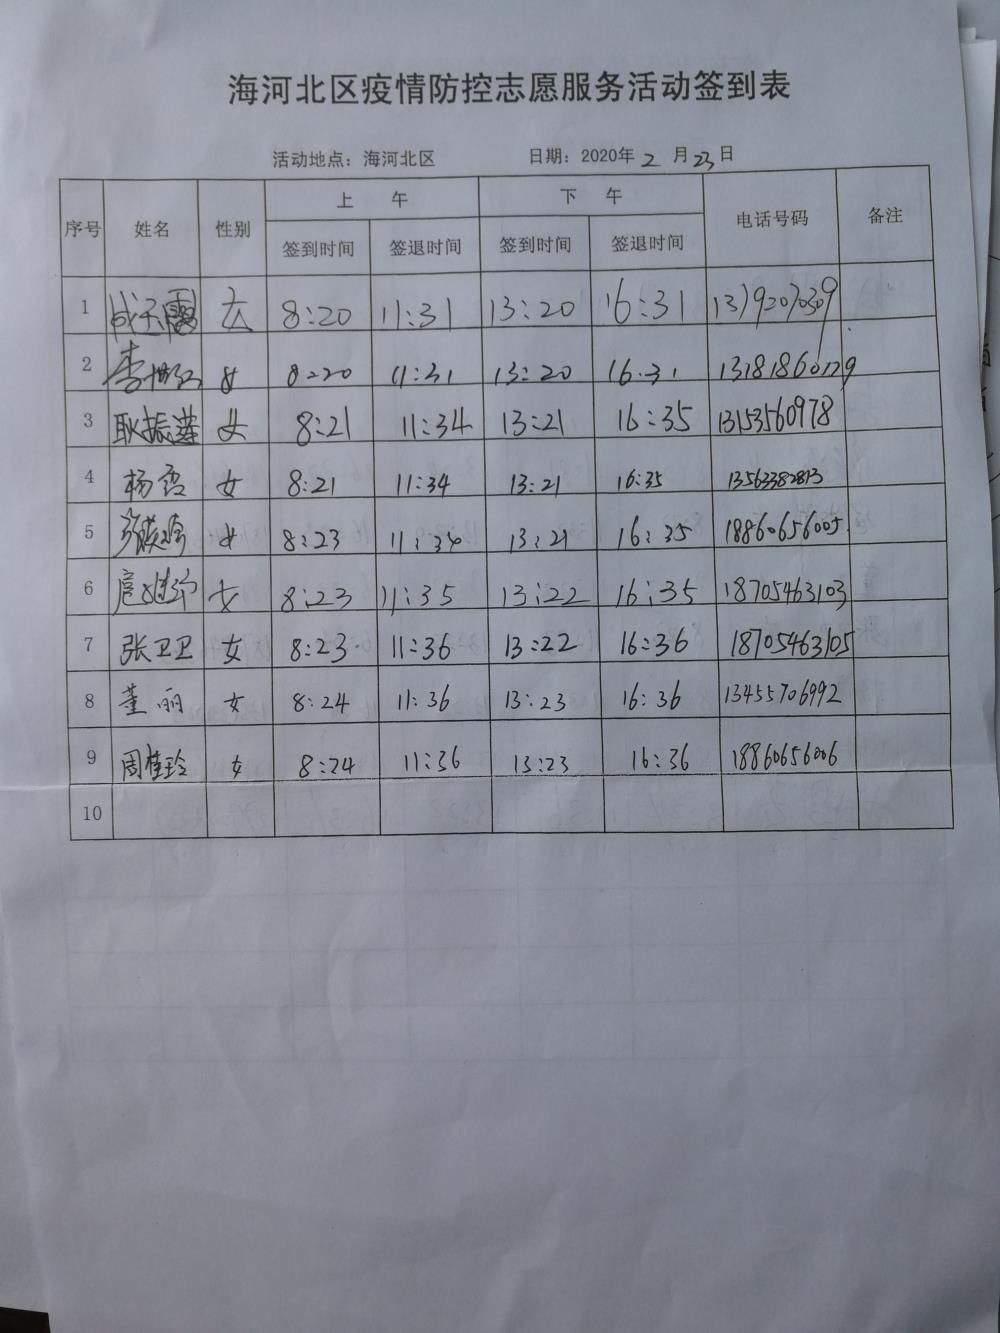 海河北区疫情防控志愿服务活动签到表
活动地点：海河北区 日期：2020年 2 月 23 日
序号 姓名 性别 上 午 下 午 电话号码 备注
签到时间 签退时间 签到时间 签退时间
1 女 8:20 11:31 13:20 16:31
2 李 女 8:20 11:31 13:20 16:31 13181860179
3 耿振莲 女 8:21 11:34 13:21 16:35 13153560978
4 杨霞 女 8:21 11:34 13:21 16:35 13563382813
5 女 8:23 11:34 13:21 16:35 18860656005
6 女 8:23 11:35 13:22 16:35 18705463103
7 张卫卫 女 8:23 11:36 13:22 16:36 18705463105
8 董丽 女 8:24 11:36 13:23 16:36 13455706992
9 周桂玲 女 8:24 11:36 13:23 16:36 18860656006
10